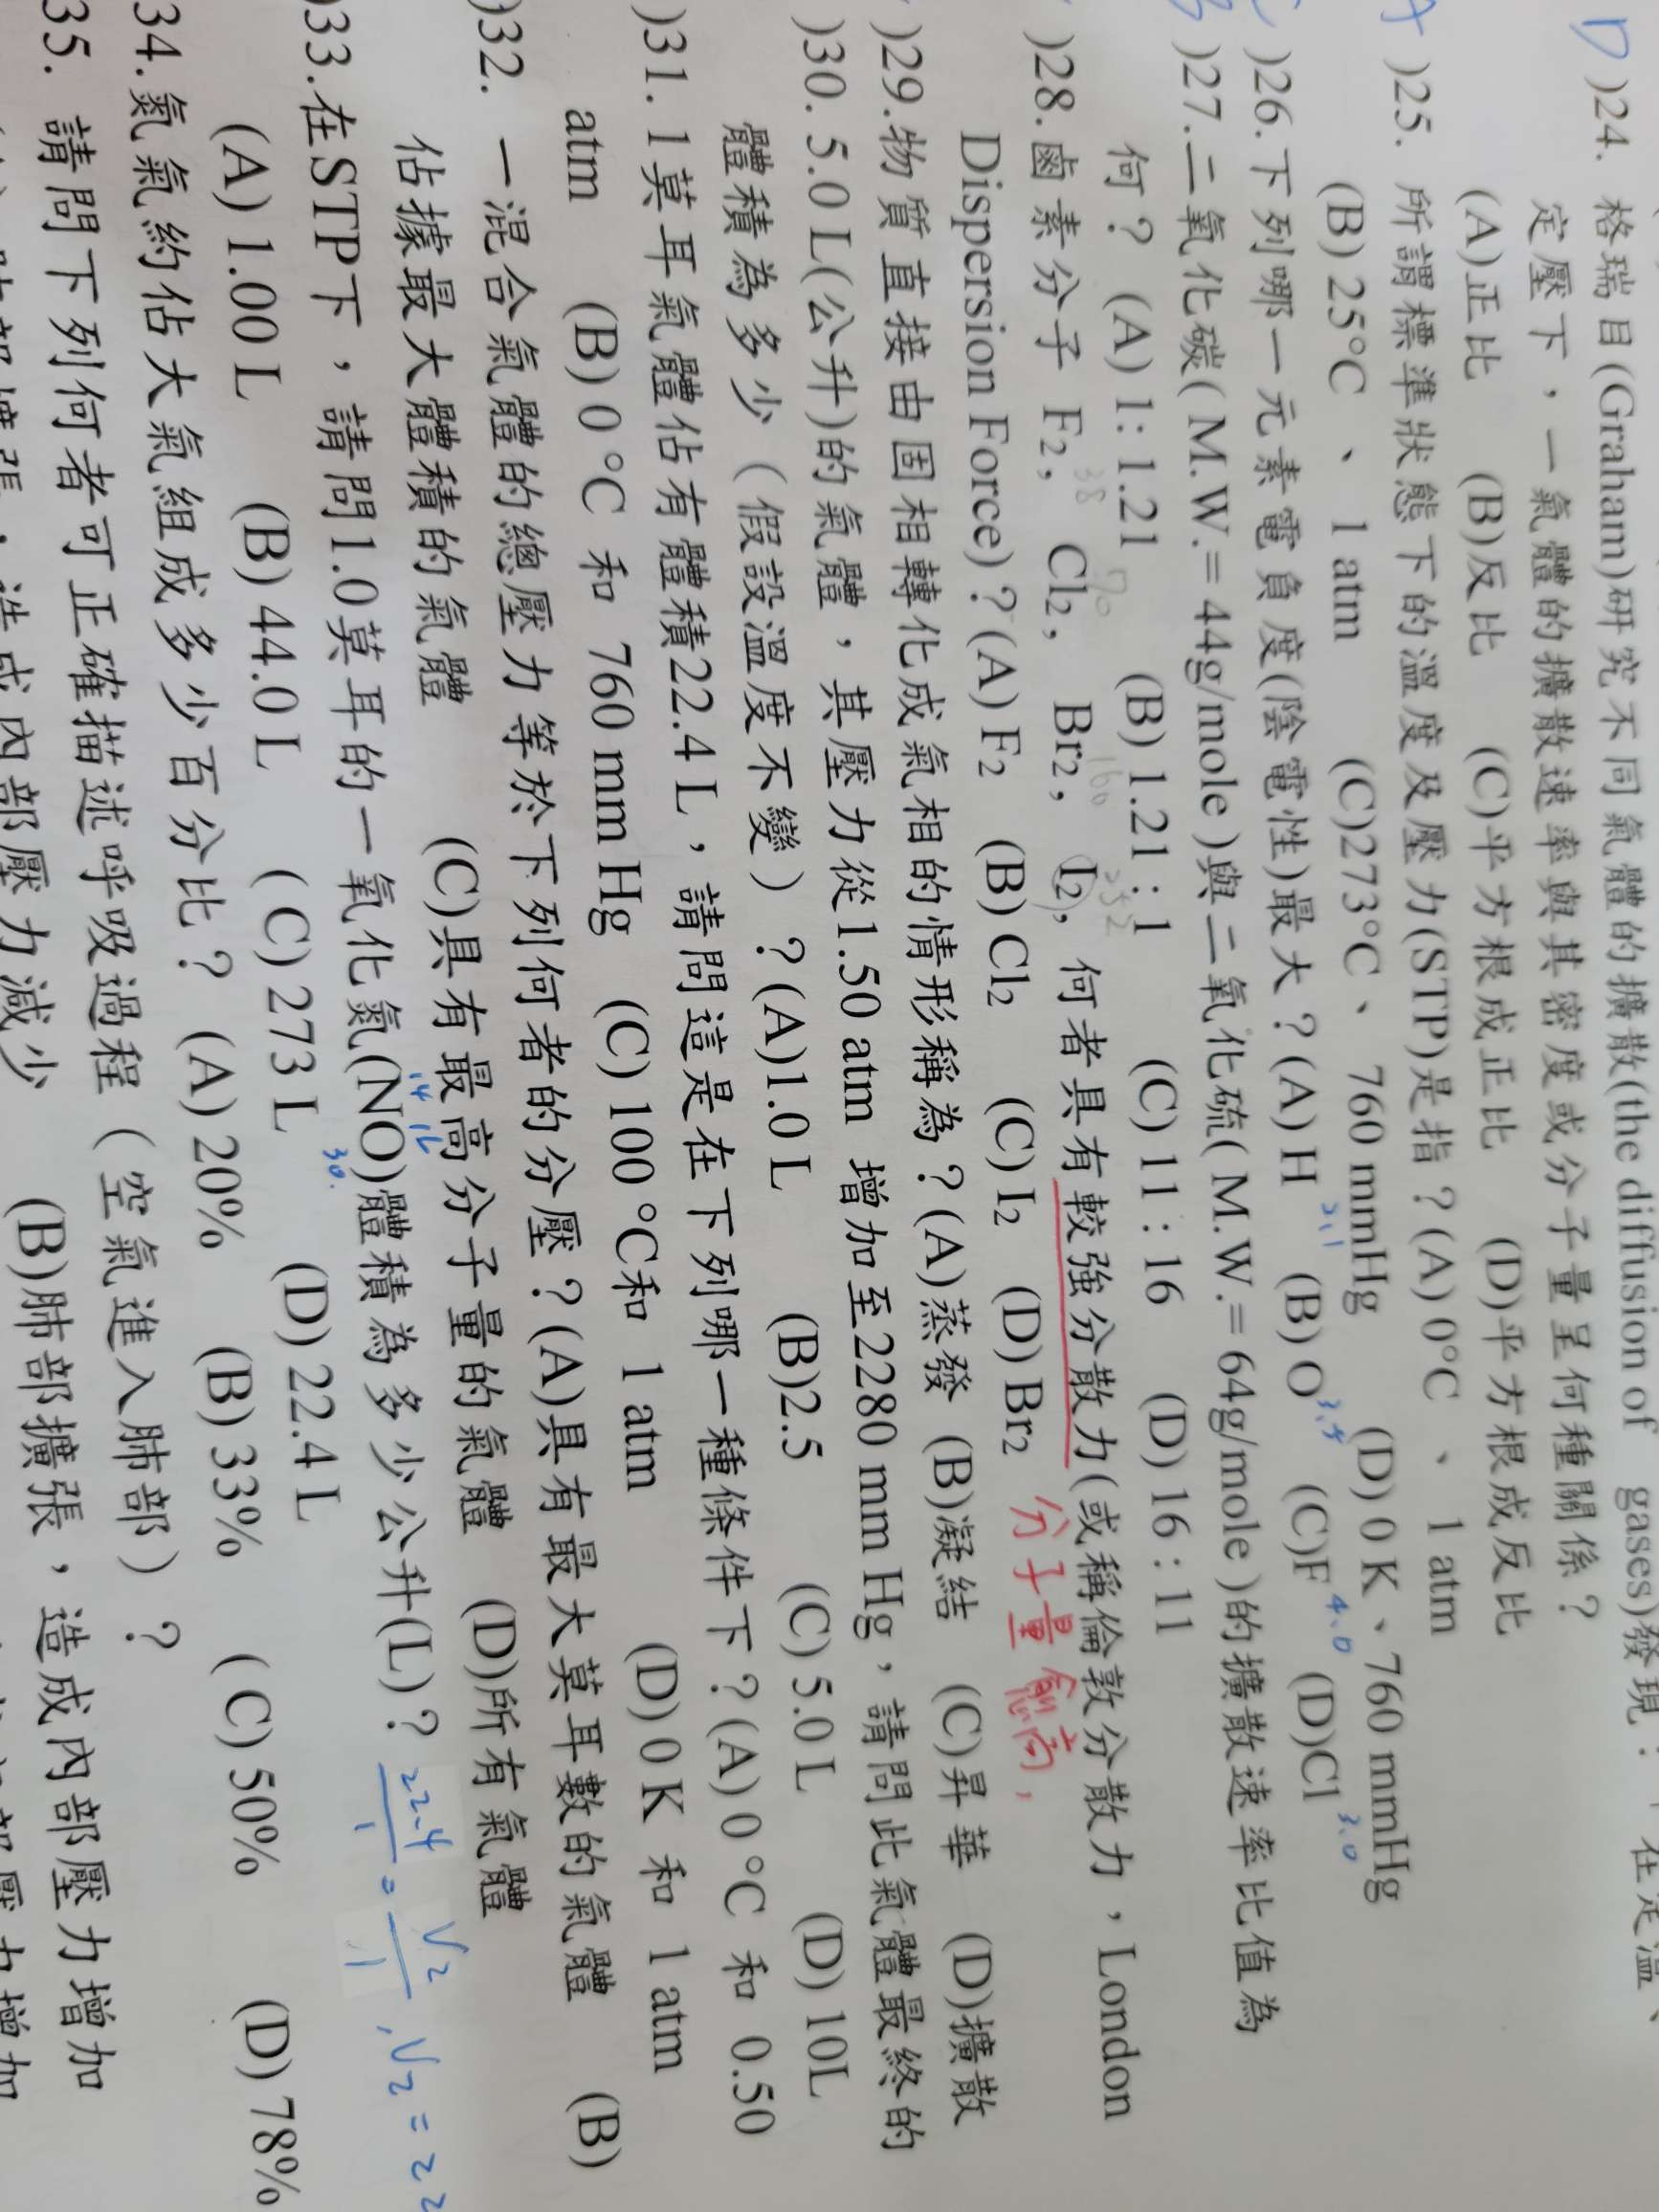 D )24. 格瑞目(Graham)研究不同氣體的擴散(the diffusion of gases)發現：在定溫、
定壓下，一氣體的擴散速率與其密度或分子量呈何種關係？
(A)正比 (B)反比 (C)平方根成正比 (D)平方根成反比
A )25. 所謂標準狀態下的溫度及壓力(STP)是指？(A) 0°C 、 1 atm
(B) 25°C 、 1 atm (C)273°C、 760 mmHg (D) 0 K、760 mmHg
)26.下列哪一元素電負度(陰電性)最大？(A) H 2.1 (B) O 3.4 (C)F 4.0 (D)Cl 3.0
B )27.二氧化碳( M.W.= 44g/mole )與二氧化硫( M.W.= 64g/mole )的擴散速率比值為
何？ (A) 1: 1.21 (B) 1.21 : 1 (C) 11 : 16 (D) 16 : 11
38 70 160 252
)28.鹵素分子 F2, Cl2, Br2, I2, 何者具有較強分散力(或稱倫敦分散力，London
Dispersion Force)？(A) F2 (B) Cl2 (C) I2 (D) Br2 分子量愈高，
)29.物質直接由固相轉化成氣相的情形稱為？(A)蒸發 (B)凝結 (C)昇華 (D)擴散
)30. 5.0 L(公升)的氣體，其壓力從1.50 atm 增加至2280 mm Hg，請問此氣體最終的
體積為多少（假設溫度不變）？(A)1.0 L (B)2.5 (C) 5.0 L (D) 10L
)31. 1莫耳氣體佔有體積22.4 L，請問這是在下列哪一種條件下？(A) 0 °C 和 0.50
atm (B) 0 °C 和 760 mm Hg (C) 100 °C和 1 atm (D) 0 K 和 1 atm
)32. 一混合氣體的總壓力等於下列何者的分壓？(A)具有最大莫耳數的氣體 (B)
佔據最大體積的氣體 (C)具有最高分子量的氣體 (D)所有氣體
14 16
30.
)33.在STP下，請問1.0莫耳的一氧化氮(NO)體積為多少公升(L)？ 22.4/1 = V2/1 , V2 = 22
(A) 1.00 L (B) 44.0 L (C) 273 L (D) 22.4 L
34.氮氣約佔大氣組成多少百分比？ (A) 20% (B) 33% (C) 50% (D) 78%
35. 請問下列何者可正確描述呼吸過程（空氣進入肺部）？
造成內部壓力減少 (B)肺部擴張，造成內部壓力增加